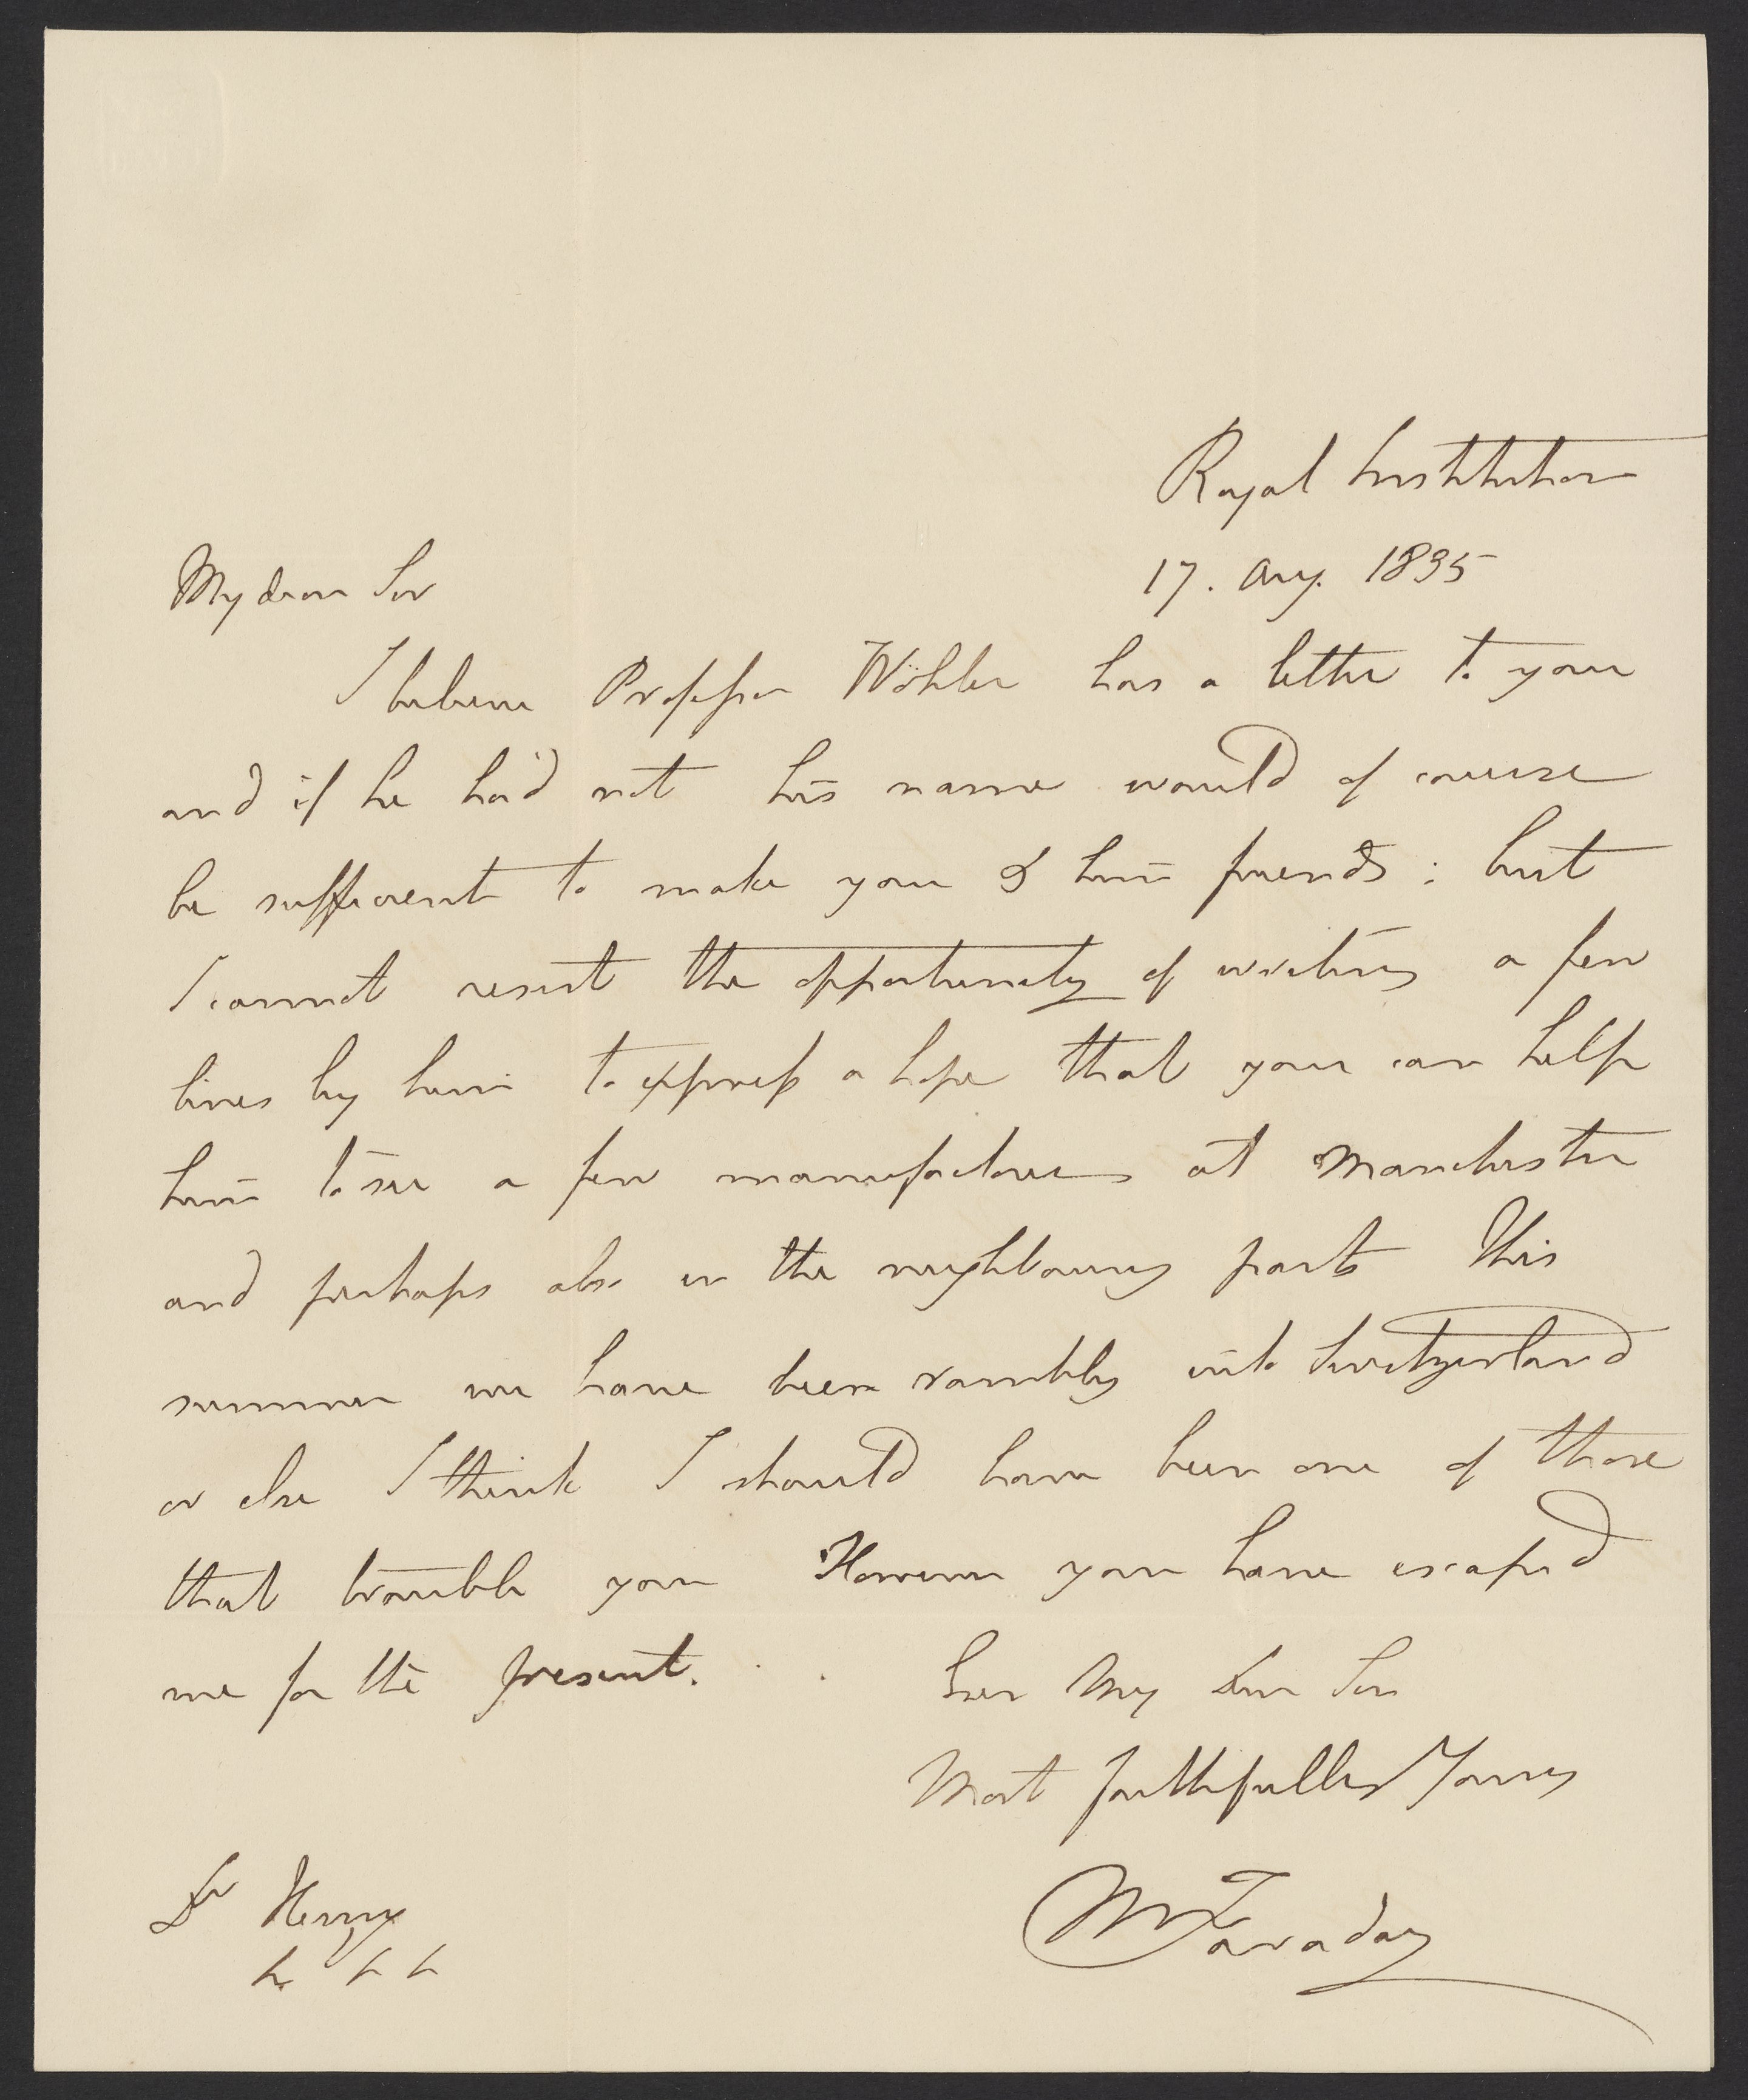 Royal Institution
17. Aug. 1835
My dear Sir
I believe Professor Wöhler has a letter to you
and if he had not his name would of course
be sufficient to make you & him friends; but
I cannot resist the opportunity of writing a few
lines by him to express a hope that you can help
him to see a few manufactories at Manchester
and perhaps also in the neighbouring parts This
summer we have been rambling into Switzerland
or else I think I should have been one of those
that trouble you However you have escaped
me for the present.
Ever My dear Sir
Most faithfully Yours
M Faraday
Dr Henry
&c &c &c